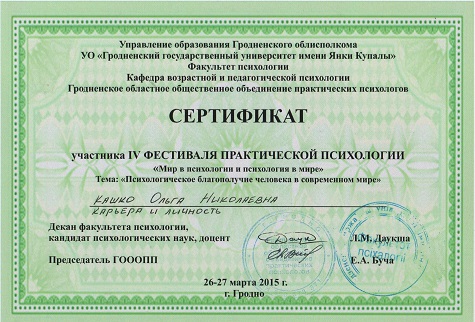 Управление образования Гродненского облисполкома
УО «Гродненский государственный университет имени Янки Купалы»
Факультет психологии
Кафедра возрастной и педагогической психологии
Гродненское областное общественное объединение практических психологов
СЕРТИФИКАТ
участника IV ФЕСТИВАЛЯ ПРАКТИЧЕСКОЙ ПСИХОЛОГИИ
«Мир в психологии и психология в мире»
Тема: «Психологическое благополучие человека в современном мире»
Кашко Ольга Николаевна
карьера и личность
Декан факультета психологии,
кандидат психологических наук, доцент Л.М. Даукша
Председатель ГОООПП Е.А. Буча
26-27 марта 2015 г.
г. Гродно